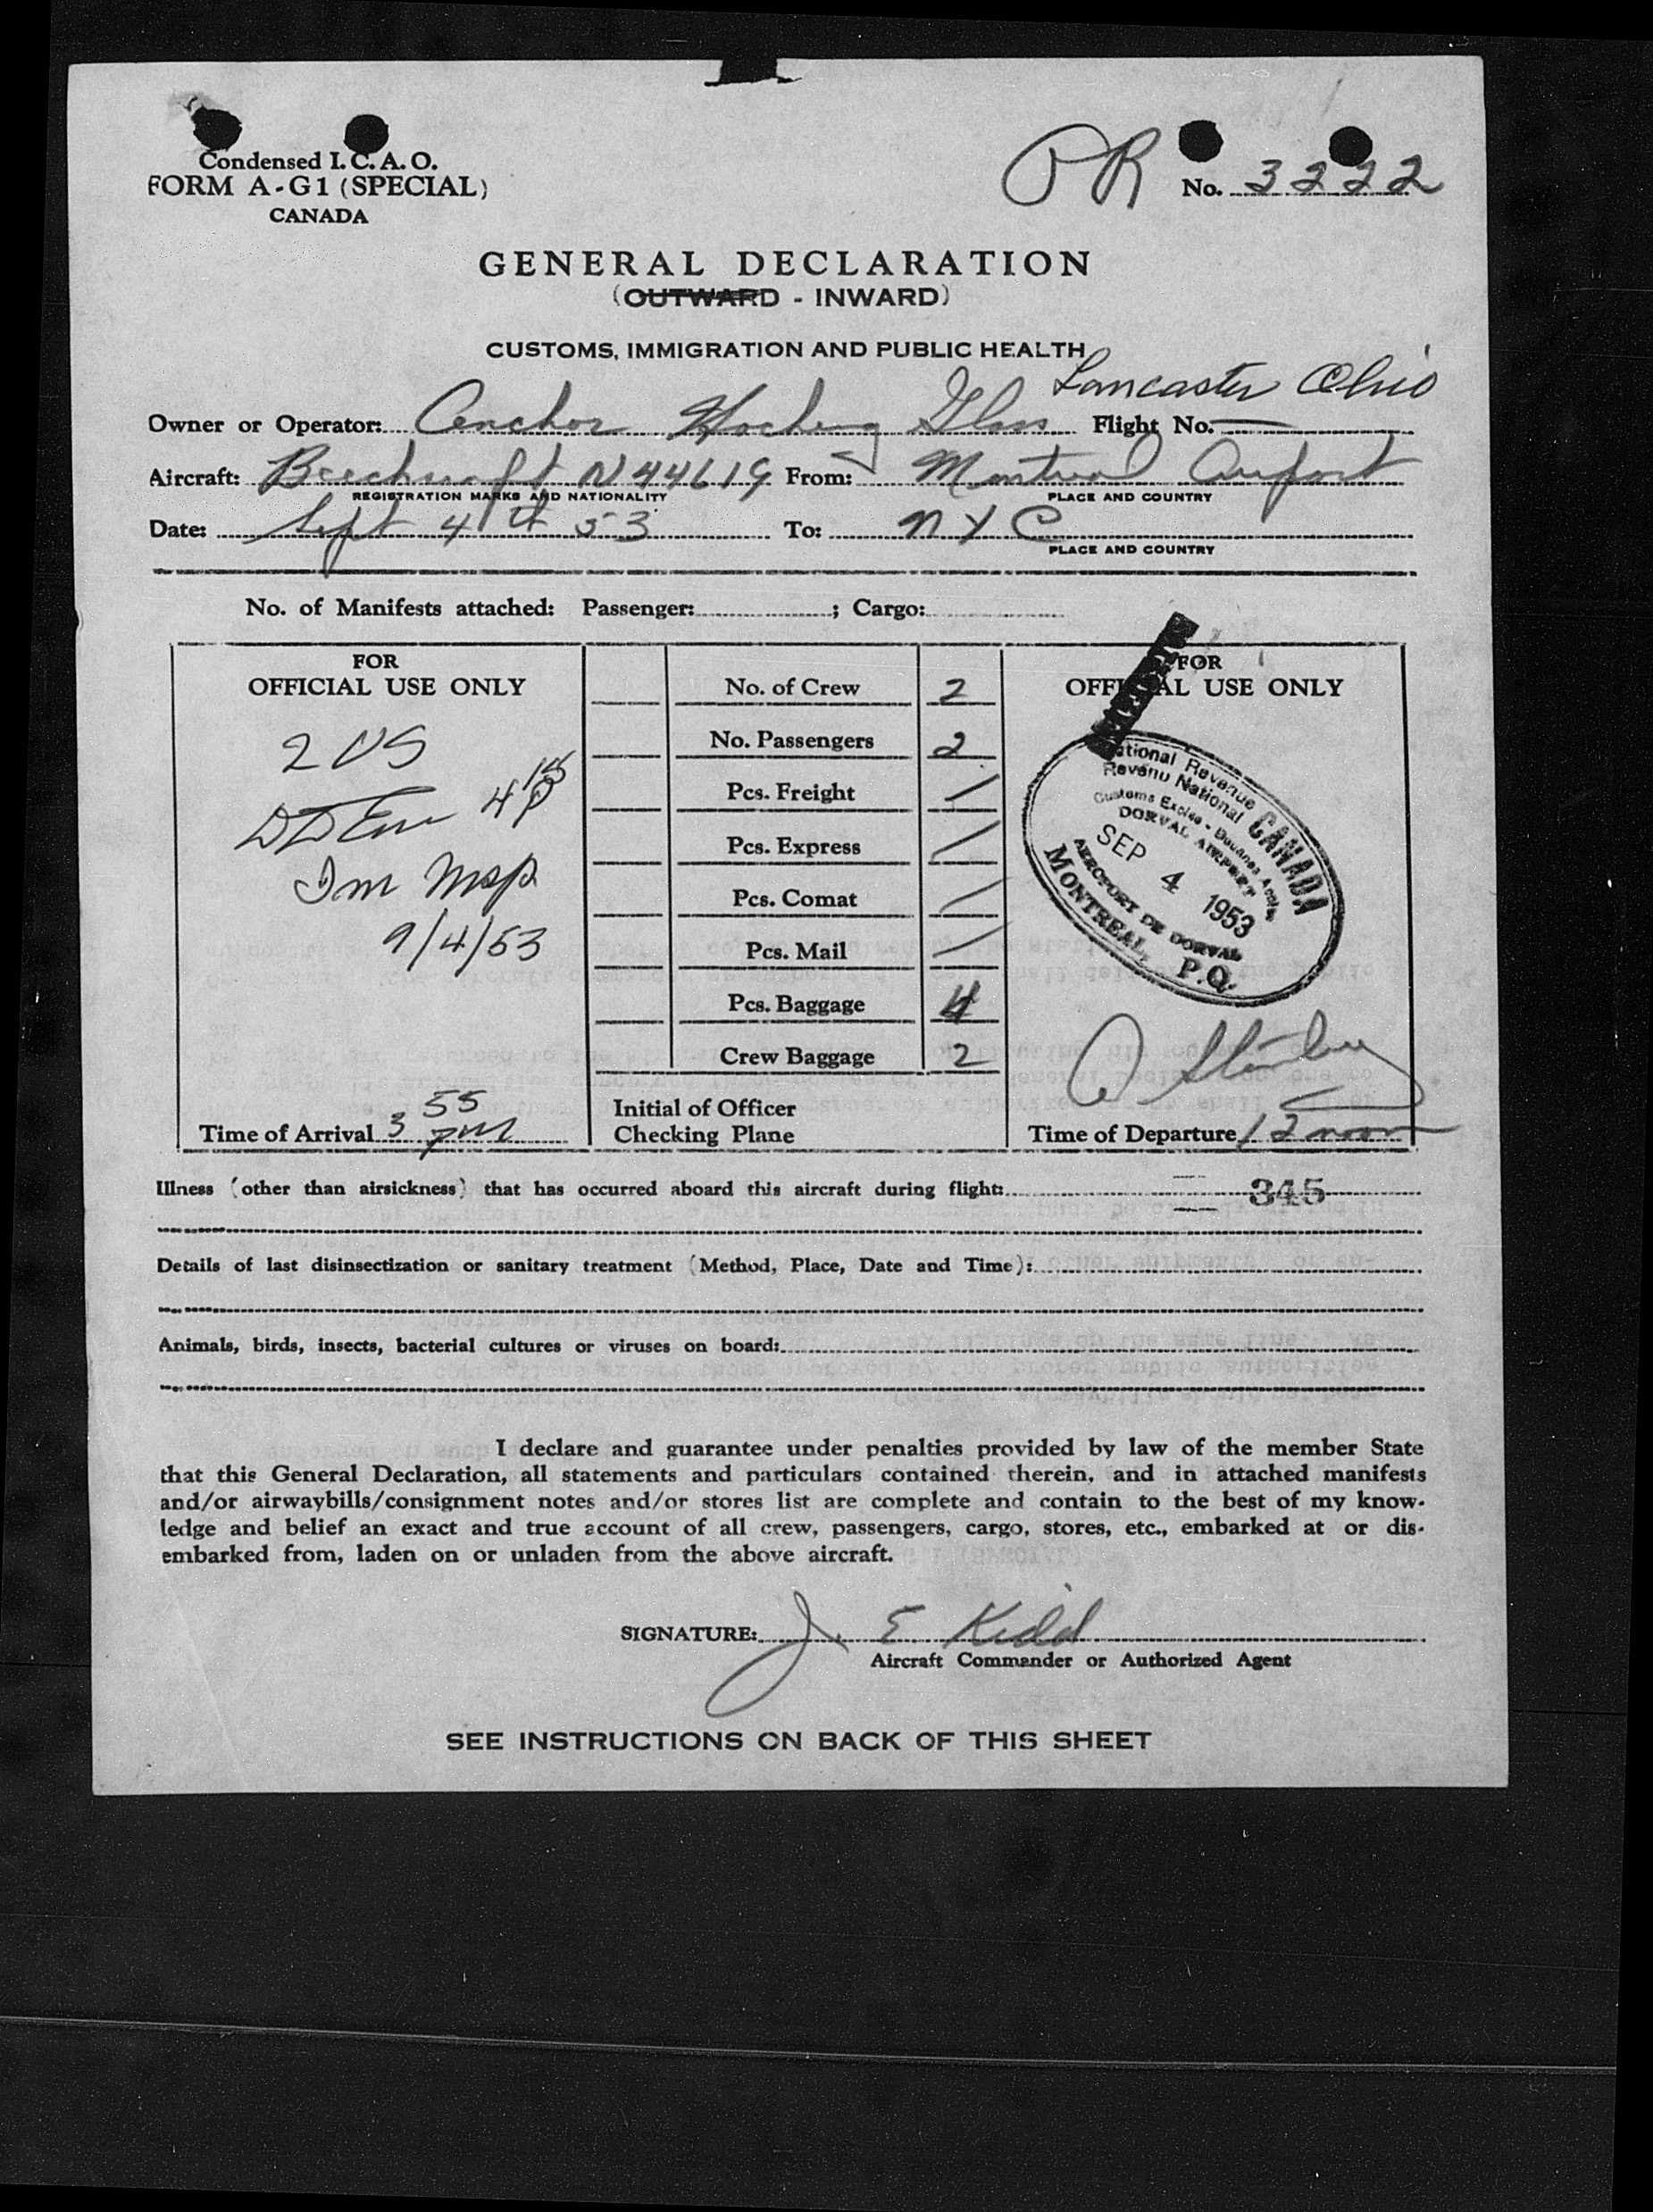 Condensed I.C.A.O.
FORM A-G1 (SPECIAL)
CANADA
PR No. 3222
GENERAL DECLARATION
(OUTWARD - INWARD)
CUSTOMS, IMMIGRATION AND PUBLIC HEALTH
Lancaster Ohio
Owner or Operator: Anchor Hocking Glass Flight No.
Aircraft: Beechcraft N44619 From: Montreal Airport
REGISTRATION MARKS AND NATIONALITY PLACE AND COUNTRY
Date: Sept 4th 53 To: NYC
PLACE AND COUNTRY
No. of Manifests attached: Passenger: ; Cargo:
FOR
OFFICIAL USE ONLY
2 US
4 15 P
Im Insp
9/4/53
Time of Arrival 3 55 PM
No. of Crew 2
No. Passengers 2
Pcs. Freight /
Pcs. Express /
Pcs. Comat /
Pcs. Mail /
Pcs. Baggage 4
Crew Baggage 2
Initial of Officer
Checking Plane
FOR
OFFICIAL USE ONLY
National Revenue
Revenu National
CANADA
Customs Excise - Douanes Accise
DORVAL AIRPORT
SEP 4 1953
AEROPORT DE DORVAL
MONTREAL, P.Q.
Time of Departure 12 noon
Illness (other than airsickness) that has occurred aboard this aircraft during flight: 345
Details of last disinsectization or sanitary treatment (Method, Place, Date and Time):
Animals, birds, insects, bacterial cultures or viruses on board:
I declare and guarantee under penalties provided by law of the member State
that this General Declaration, all statements and particulars contained therein, and in attached manifests
and/or airwaybills/consignment notes and/or stores list are complete and contain to the best of my know-
ledge and belief an exact and true account of all crew, passengers, cargo, stores, etc., embarked at or dis-
embarked from, laden on or unladen from the above aircraft.
SIGNATURE: J. E. Kidd
Aircraft Commander or Authorized Agent
SEE INSTRUCTIONS ON BACK OF THIS SHEET